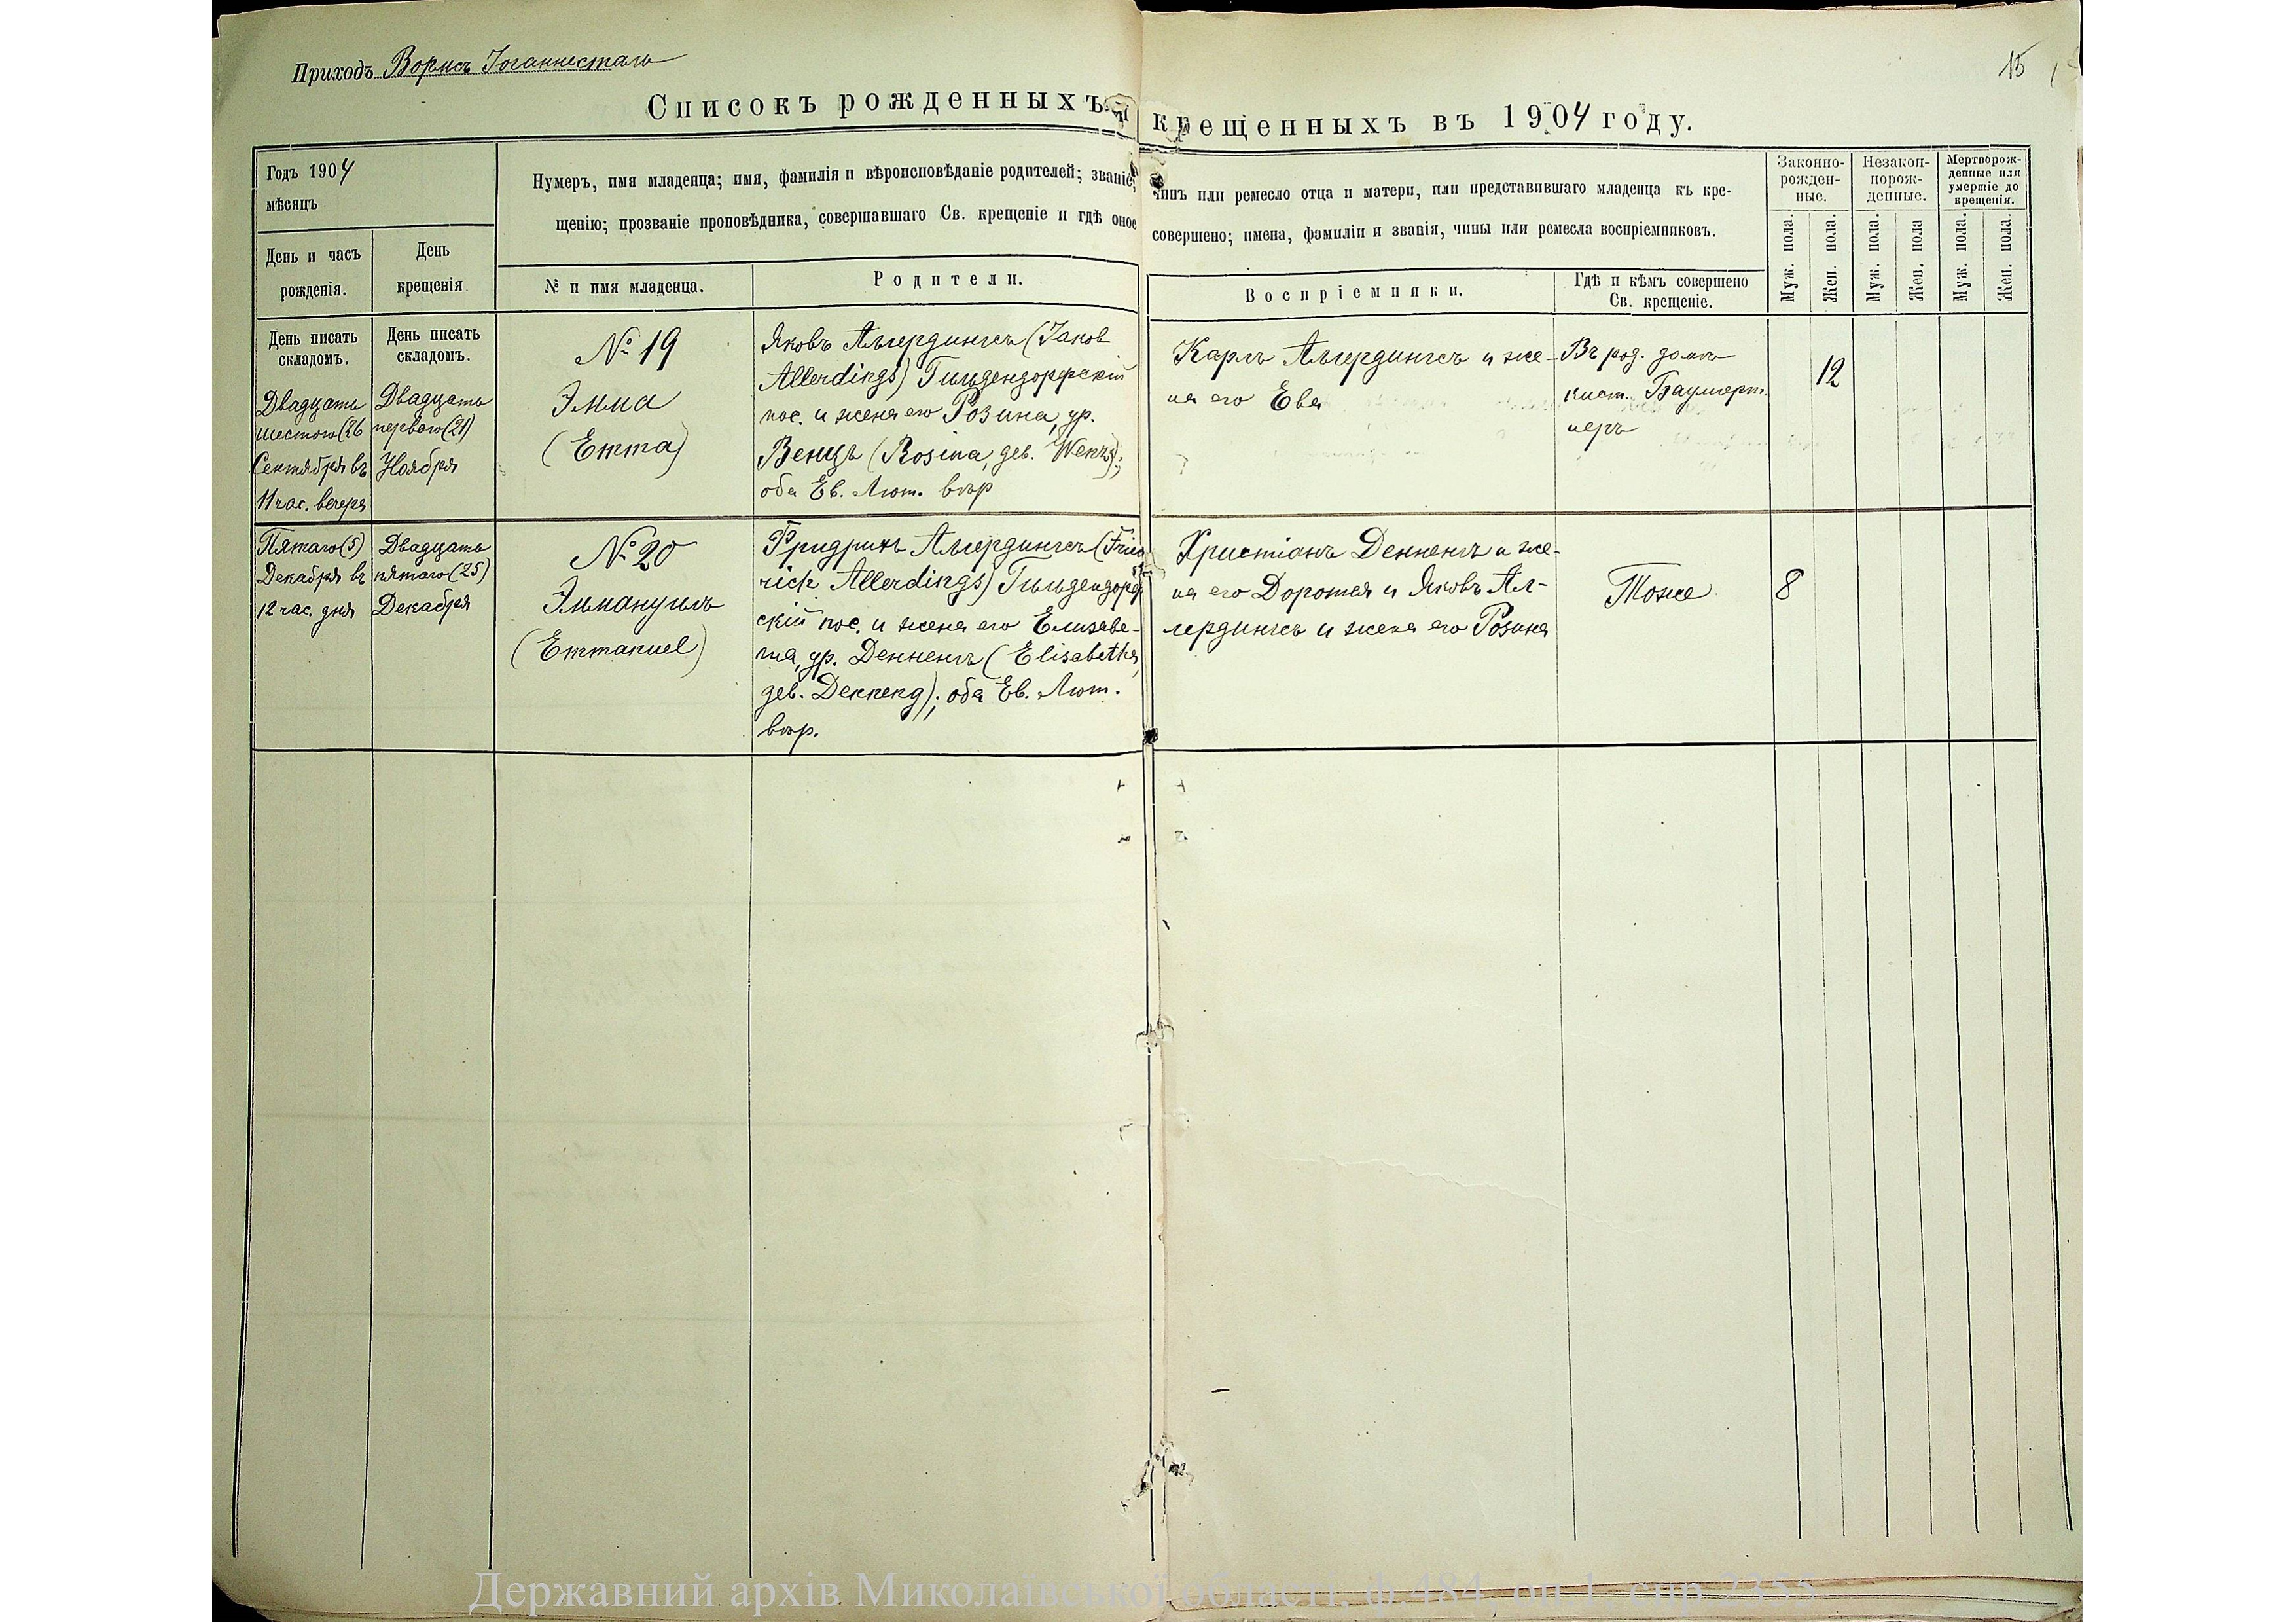 Приходъ Вормсъ Іоганнесталь
15
Списокъ рожденныхъ и крещенныхъ въ 1904 году.
Годъ 1904
мѣсяцъ
День и часъ
рожденія.
День
крещенія
Нумеръ, имя младенца; имя, фамилія и вѣроисповѣданіе родителей; званіе, чинъ или ремесло отца и матери, или представившаго младенца къ кре-
щенію; прозваніе проповѣдника, совершавшаго Св. крещеніе и гдѣ оное совершено; имена, фамиліи и званія, чины или ремесла воспріемниковъ.
№ и имя младенца.
Родители.
Воспріемники.
Гдѣ и кѣмъ совершено
Св. крещеніе.
Законно-
рожден-
ные.
Незакон-
норож-
денные.
Мертворож-
денные или
умершіе до
крещенія.
Муж. пола.
Жен. пола.
Муж. пола.
Жен. пола
Муж. пола.
Жен. пола.
День писать
складомъ.
День писать
складомъ.
Двадцать
шестого (26
Сентября въ
11 час. вечера
Двадцать
перваго (21)
Ноября
№ 19
Эмма
(Emma)
Яковъ Аллердингсъ (Jakob
Allerdings) Гильдендорфскій
пос. и жена его Розина, ур.
Венцъ (Rosina, дев. Wenz);
оба Ев. Лют. вѣр
Карлъ Аллердингсъ и же-
на его Ева
Въ род. домѣ
кист. Баумгерт-
неръ
12
Пятаго (5)
Декабря въ
12 час. дня
Двадцать
пятаго (25)
Декабря
№ 20
Эммануилъ
(Emmanuel)
Фридрихъ Аллердингсъ (Fried
rich Allerdings) Гильдендорф
скій пос. и жена его Елизаве-
та, ур. Денненгъ (Elisabetha,
дев. Denneng); оба Ев. Лют.
вѣр.
Христіанъ Денненгъ и же-
на его Доротея и Яковъ Ал-
лердингсъ и жена его Розина
Тоже
8
Державний архів Миколаївської області, ф.484, оп.1, спр.2355